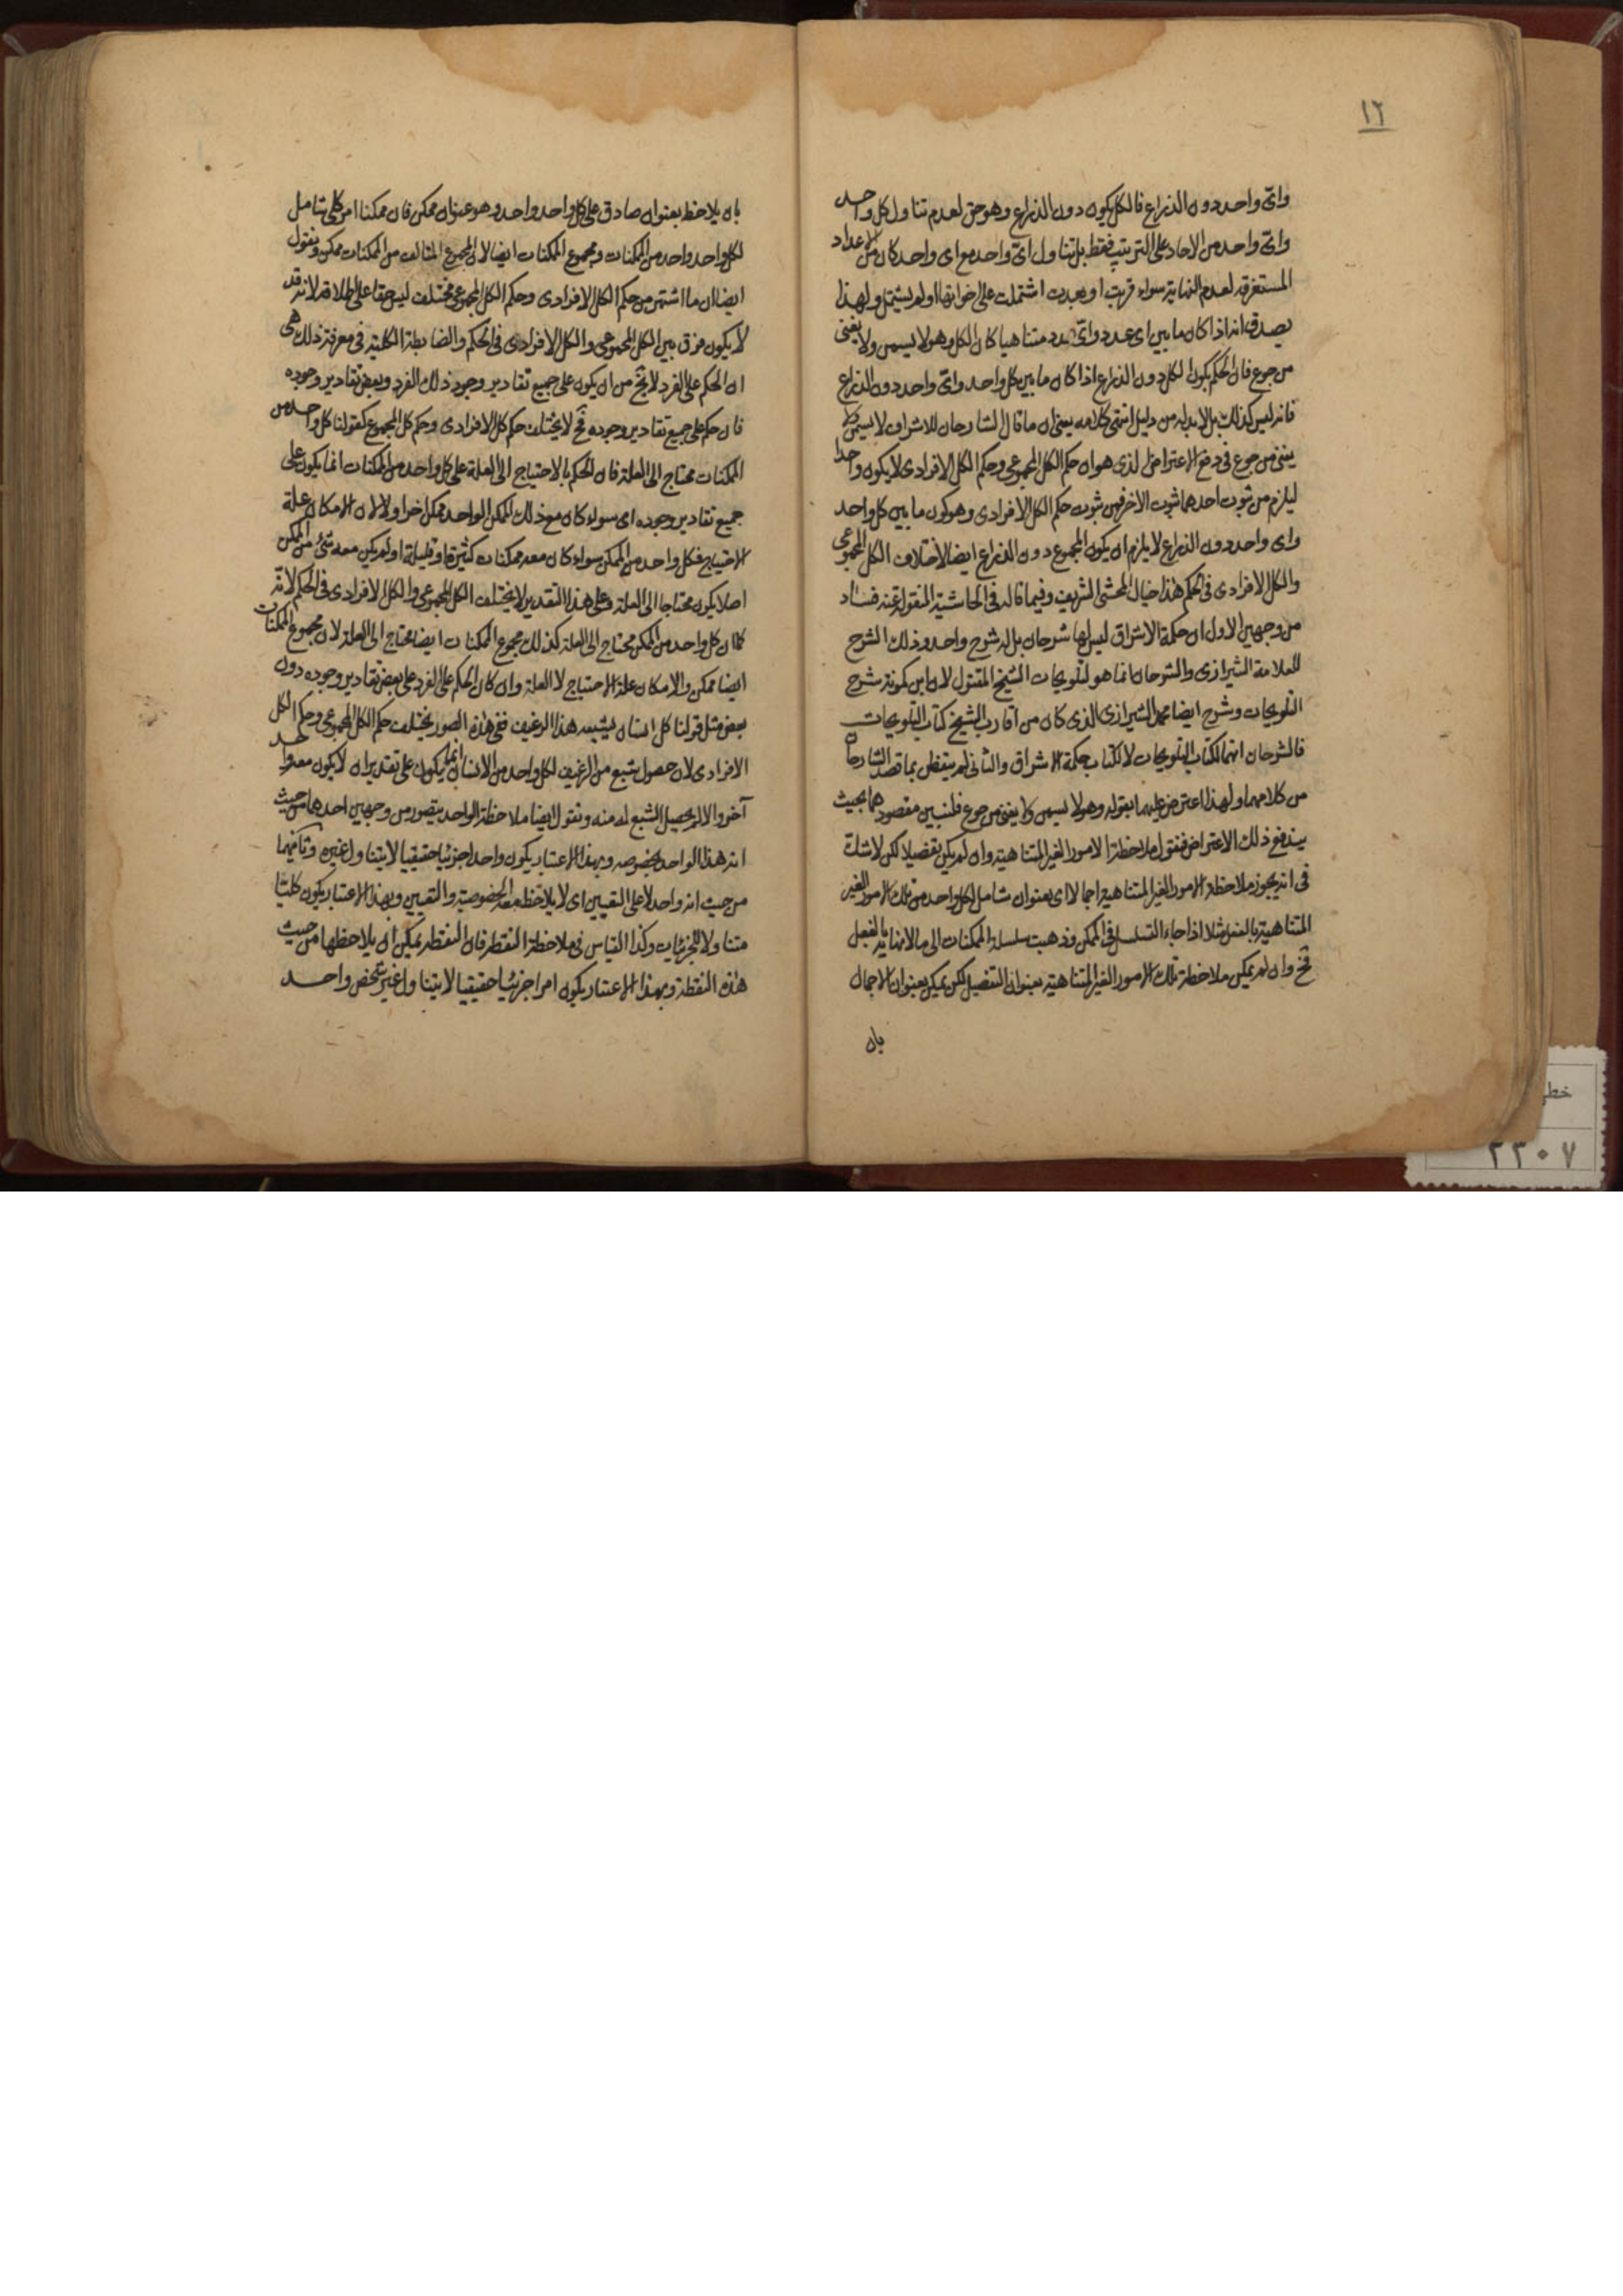 ١٢
واىّ واحد دون الذراع فالكل يكون دون الذراع وهو حق لعدم تناول كل واحد
واىّ واحد من الاحاد على الترتيب فقط بل تناول اىّ واحد مع اى واحد كان من الاعداد
المستغرقه لعدم النهاية سواء قربت او بعدت اشتملت على اخواتها او لم يشتمل ولهذا
يصدق انه اذا كان ما بين اى عدد واىّ عدد متناهيا كان الكل وهو لا يسمن ولا يغنى
من جوع فان الحكم بكون الكل دون الذراع اذا كان ما بين كل واحد واىّ واحد دون الذراع
فانه ليس كذلك بل لابد له من دليل انتهى كلامه يعنى ان ما قال الشارحان للاشراق لا يسمن ولا
يغنى من جوع فى دفع الاعتراض الذى هو ان حكم الكل المجموعى وحكم الكل الافرادى لا يكون واحدا
ليلزم من ثبوت احدهما ثبوت الاخر فمن ثبوت حكم الكل الافرادى وهو كون ما بين كل واحد
واى واحد دون الذراع لا يلزم ان يكون المجموع دون الذراع ايضا لاختلاف الكل المجموعى
والكل الافرادى فى الحكم هذا خيال المحشى الشريف وفيما قاله فى الحاشية المنقولة عنه فساد
من وجهين الاول ان حكمة الاشراق ليس لها شرحان بل له شرح واحد وذلك الشرح
للعلامة الشيرازى والشرحان انما هو لتلويحات الشيخ المقتول لان ابن كمونة شرح
التلويحات وشرح ايضا محمد الشيرازى الذى كان من اقارب الشيخ كتاب التلويحات
فالشرحان انهما لكتاب التلويحات لا لكتاب حكمة الاشراق والثانى لم يتفطن بما قصد الشارحان
من كلامهما ولهذا اعترض عليهما بقوله وهو لا يسمن ولا يغنى من جوع فلنبين مقصودهما بحيث
يندفع ذلك الاعتراض فنقول ملاحظة الامور الغير المتناهية وان لم يكن تفصيلا لكن لا شك
فى انه يجوز ملاحظة الامور الغير المتناهية اجمالا اى بعنوان شامل لكل واحد من تلك الامور الغير
المتناهية بالفعل مثلا اذا جاء التسلسل فى الممكن وذهبت سلسلة الممكنات الى ما لا نهاية بالفعل
فح وان لم يمكن ملاحظة تلك الامور الغير المتناهية بعنوان التفصيل لكن يمكن بعنوان الاجمال
بان
بان يلاحظ بعنوان صادق على كل واحد واحد وهو عنوان ممكن فان ممكنا امر كلى شامل
لكل واحد واحد من الممكنات ومجموع الممكنات ايضا لان المجموع المتالف من الممكنات ممكن ونقول
ايضا ان ما اشتهر من حكم الكل الافرادى وحكم الكل المجموعى مختلف ليس حقا على اطلاقه لانه قد
لا يكون فرق بين الكل المجموعى والكل الافرادى فى الحكم والضابطة الكلية فى معرفة ذلك هى
ان الحكم على الفرد لا يخ من ان يكون على جميع تقادير وجود ذلك الفرد وبعض تقادير وجوده
فان حكم على جميع تقادير وجوده فح لا يختلف حكم كل الافرادى وحكم كل المجموع كقولنا كل واحد من
الممكنات محتاج الى العلة فان الحكم بالاحتياج الى العلة على كل واحد من الممكنات انما يكون على
جميع تقادير وجوده اى سواء كان مع ذلك الممكن الواحد ممكن اخر او لا لان الامكان علة
الاحتياج فكل واحد من الممكن سواء كان معه ممكنات كثيرة او قليلة او لم يكن معه شئ من الممكن
اصلا يكون محتاجا الى العلة فعلى هذا التقدير لا يختلف الكل المجموعى والكل الافرادى فى الحكم لانه
كما ان كل واحد من الممكن محتاج الى العلة كذلك مجموع الممكنات ايضا محتاج الى العلة لان مجموع الممكنات
ايضا ممكن والامكان علة الاحتياج لا العلة وان كان الحكم على الفرد على بعض تقادير وجوده دون
بعض مثل قولنا كل انسان يشبعه هذا الرغيف ففى هذه الصور يختلف حكم الكل المجموعى وحكم الكل
الافرادى لان حصول شبع من الرغيف لكل واحد من الانسان انما يكون على تقدير ان لا يكون معه واحد
آخر والا لم يحصل الشبع له منه ونقول ايضا ملاحظة الواحد يتصور من وجهين احدهما من حيث
انه هذا الواحد بخصوصه وبهذا الاعتبار يكون واحدا جزئيا حقيقيا لا يتناول غيره وثانيهما
من حيث انه واحد لا على التعيين اى لا يلاحظ معه الخصوصية والتعيين وبهذا الاعتبار يكون كليا
متناولا للجزئيات وكذا القياس فى ملاحظة النقطة فان النقطة يمكن ان يلاحظها من حيث
هذه النقطة وبهذا الاعتبار يكون امرا جزئيا حقيقيا لا يتناول غير شخص واحد
خطى
٢٣٠٧